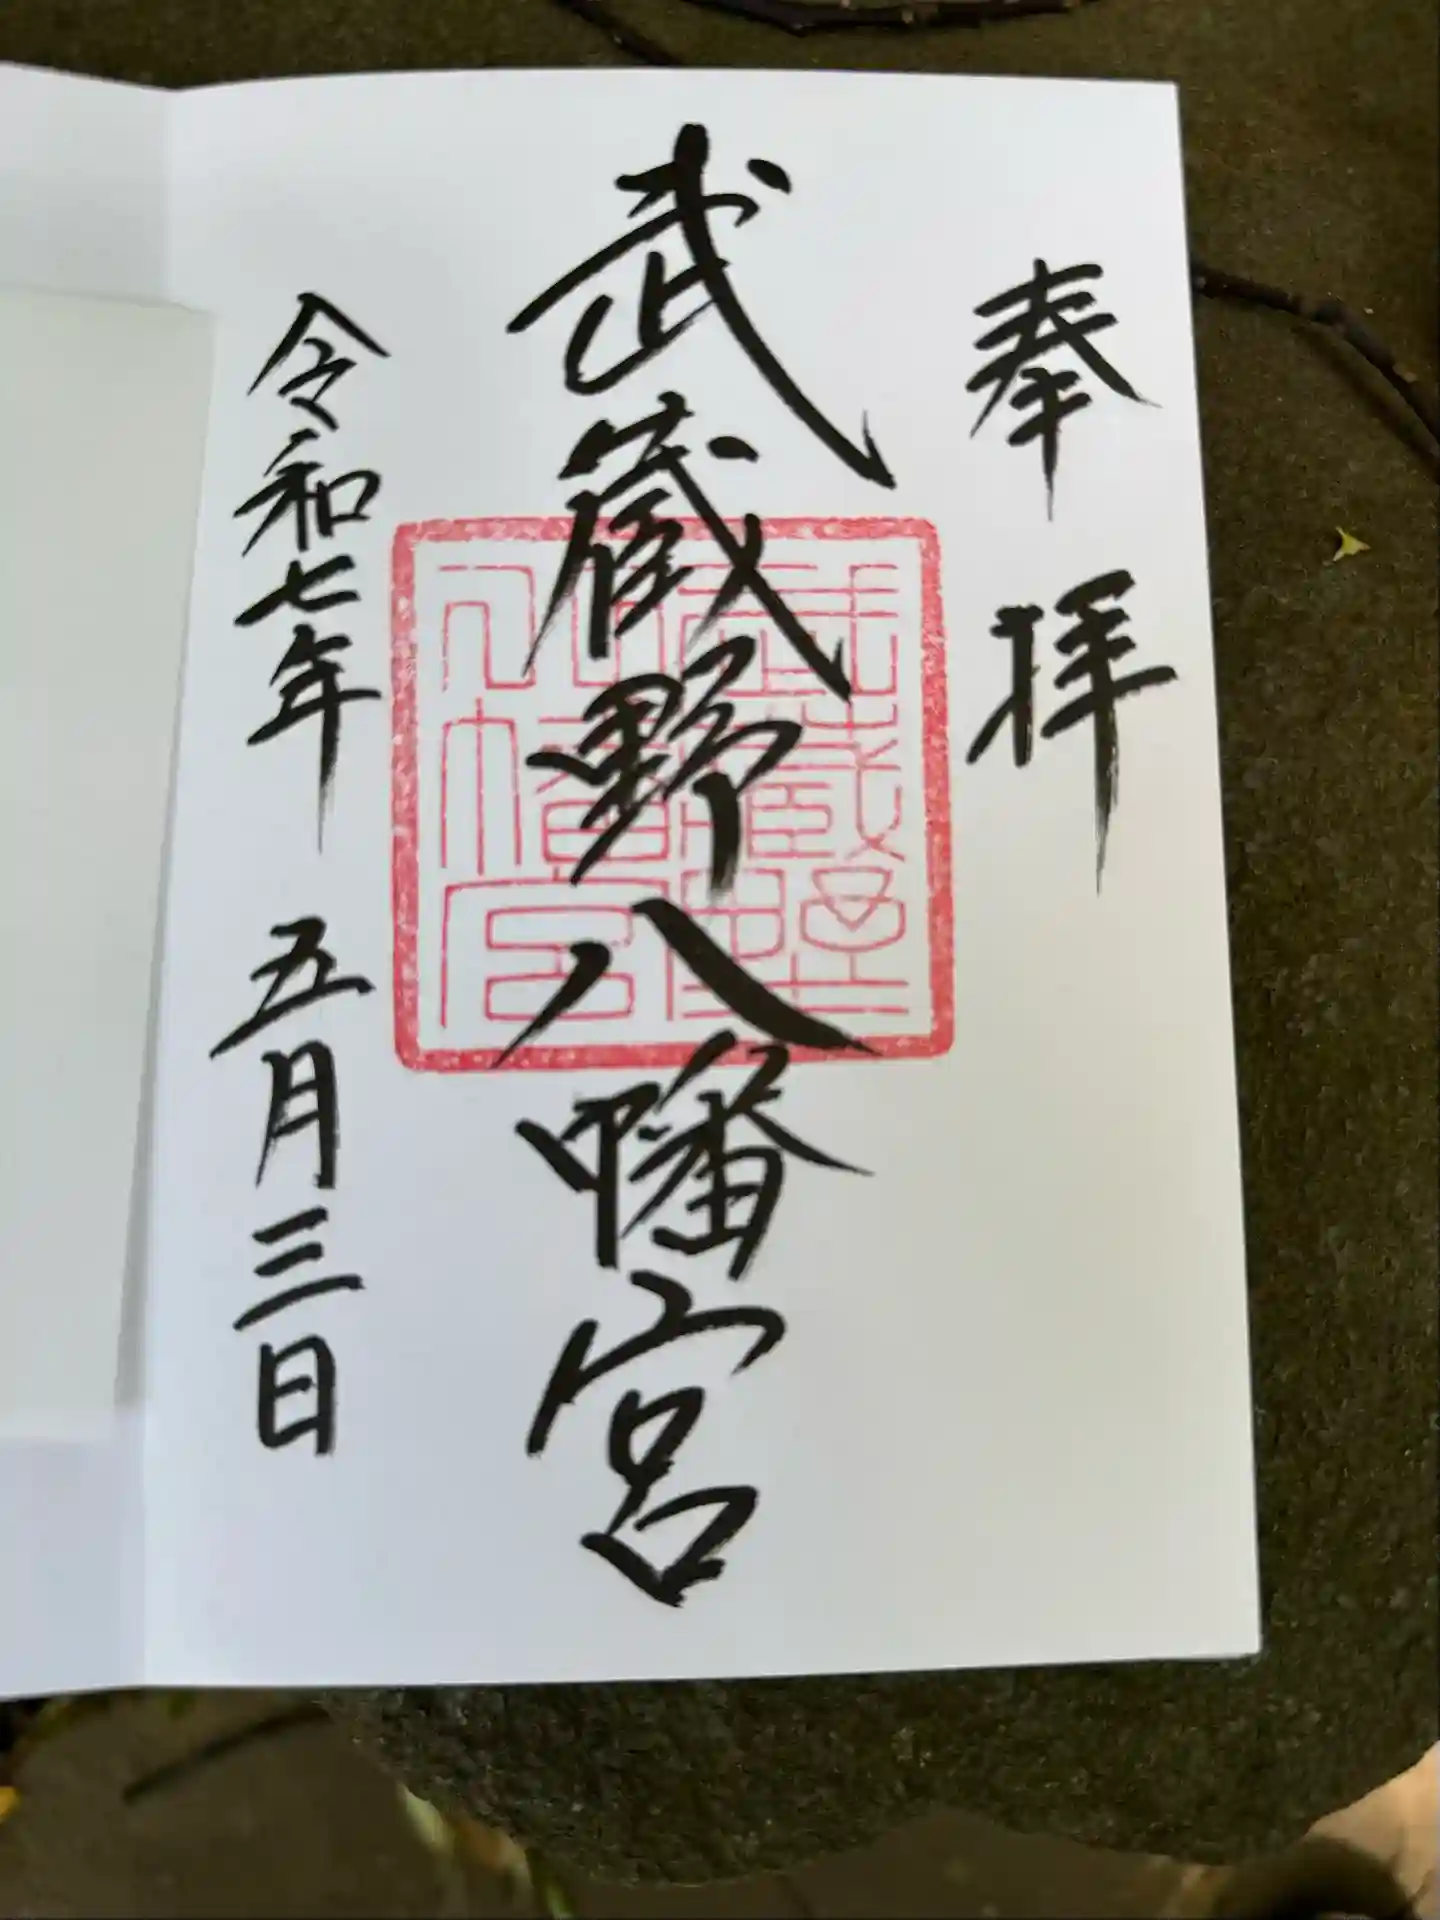 奉拝
武蔵野八幡宮
武蔵野
八幡宮
令和七年 五月三日